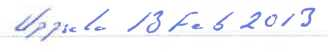 Uppsala 13 Feb 2013